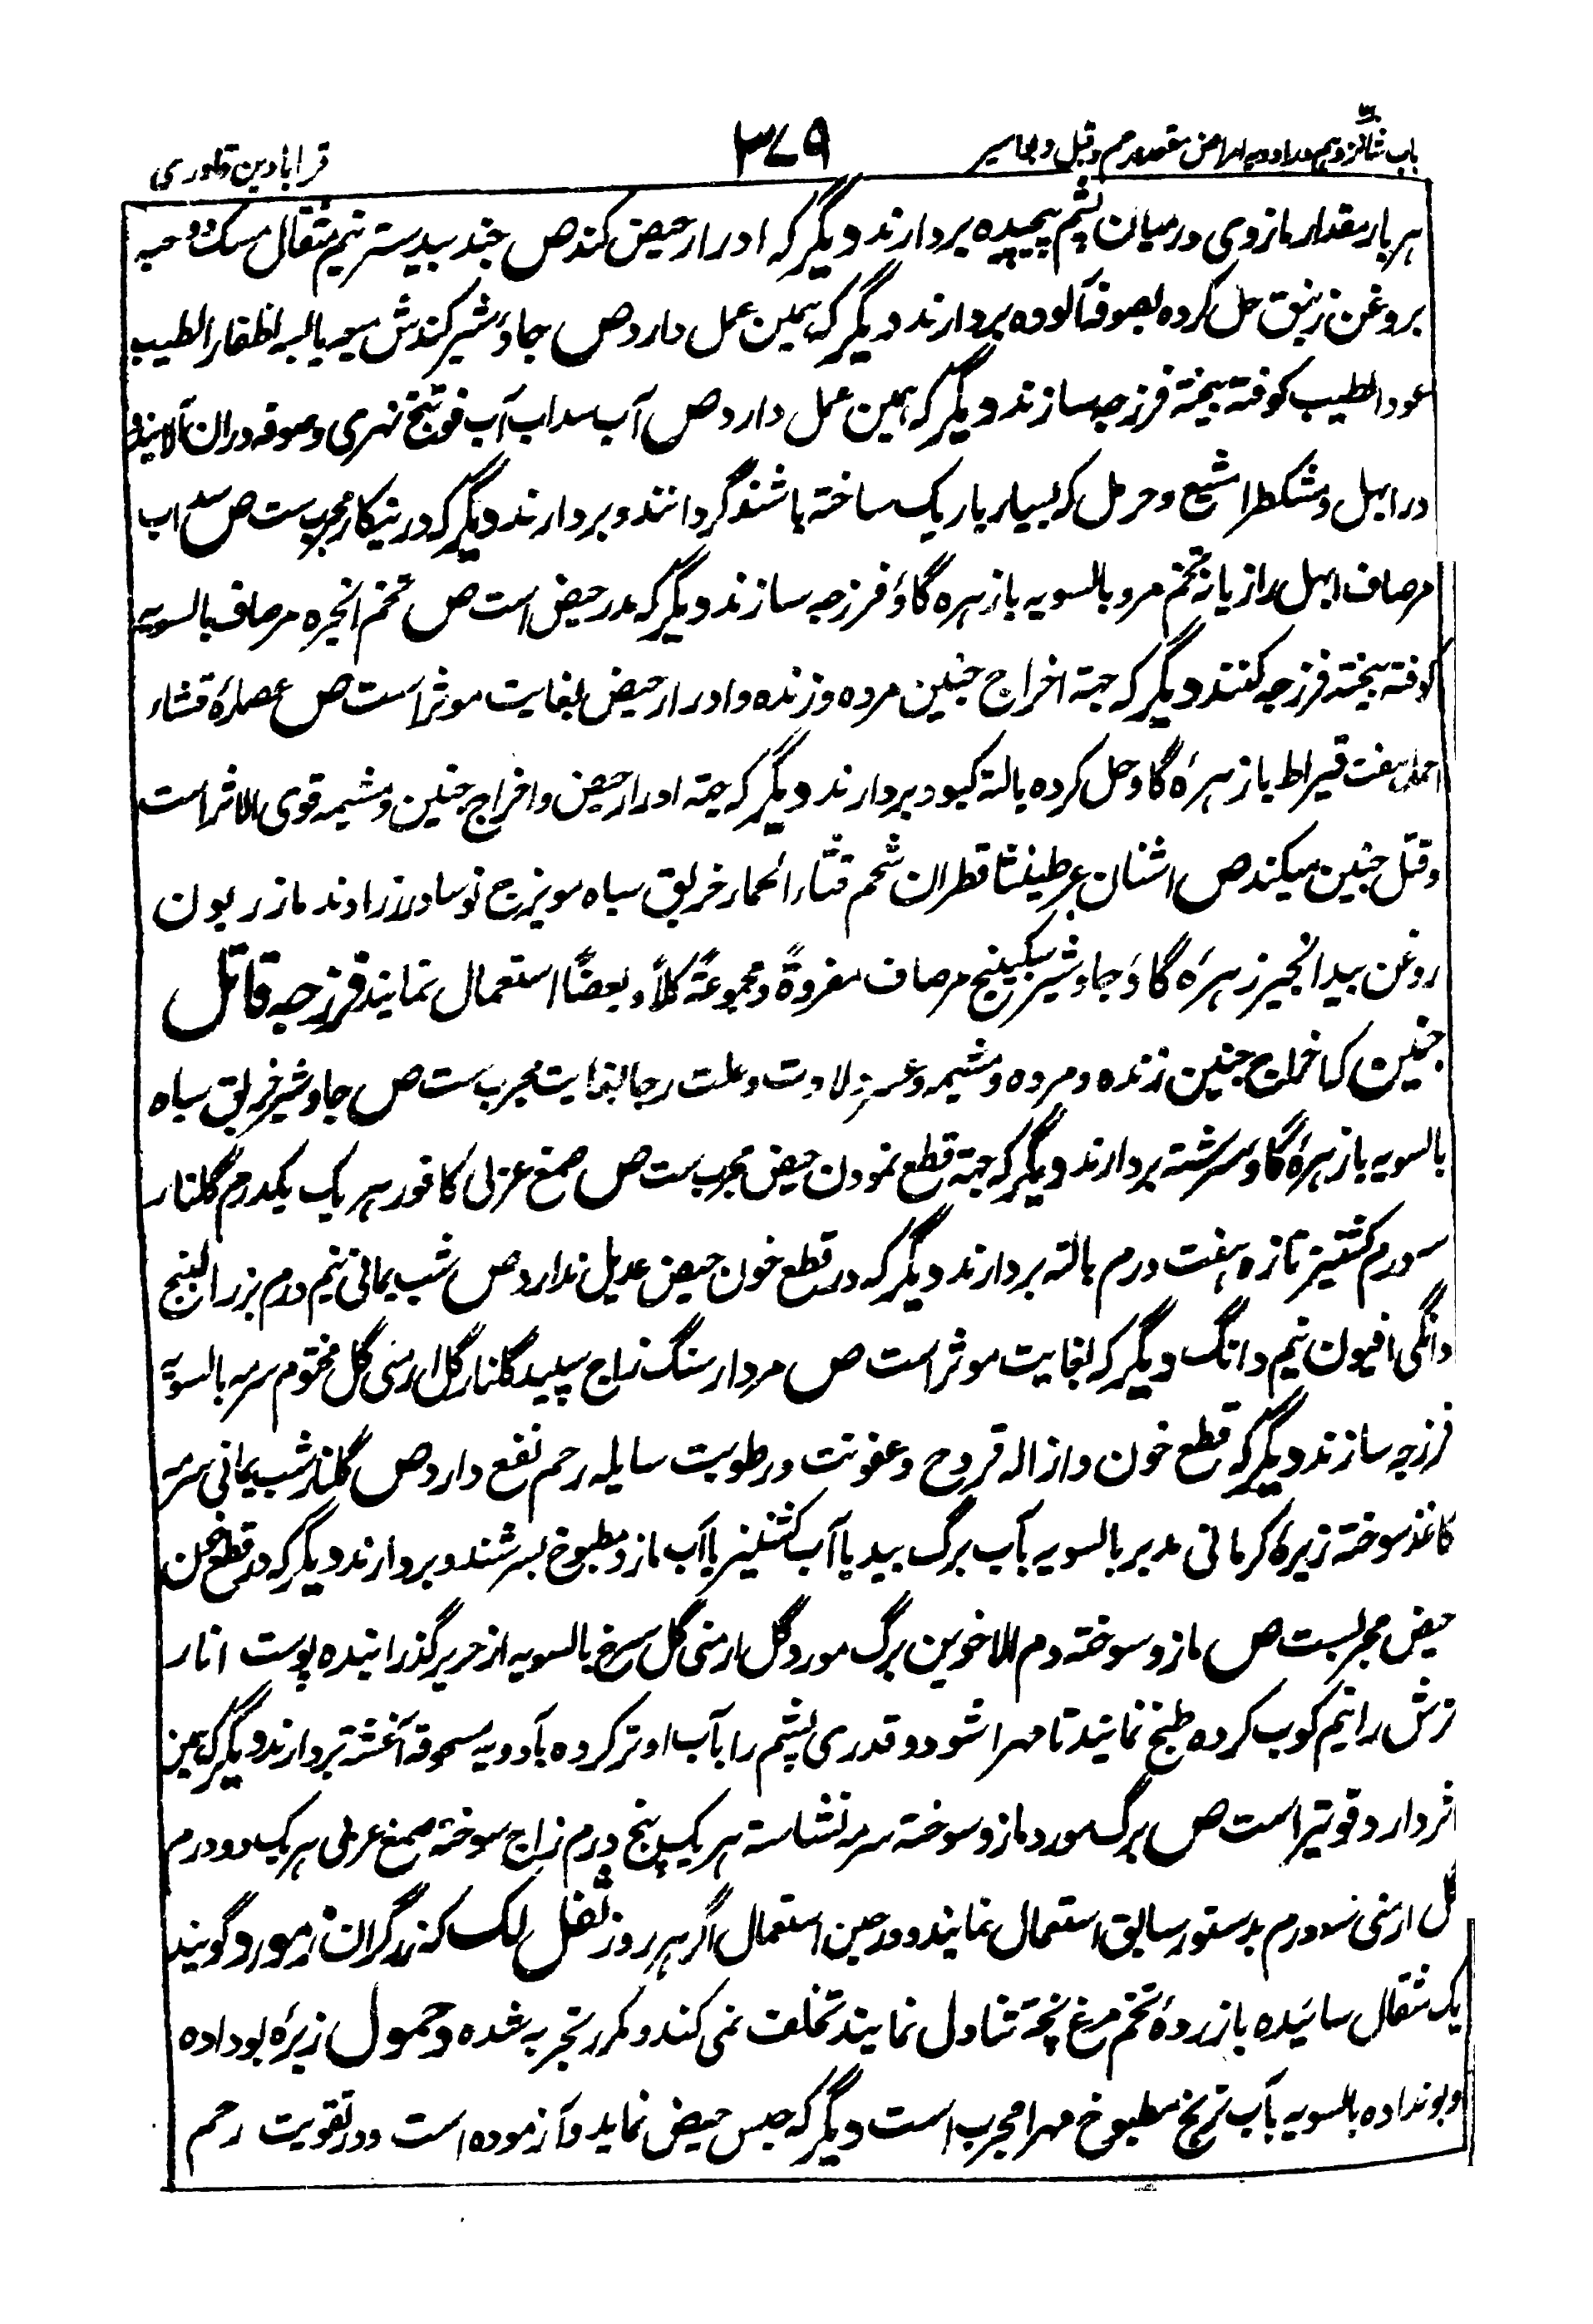 باب شانزدهم در ادویه امراض مقعد و رحم و قبل و بواسیر
۳۷۹
قرابادین قادری
هر بار مقدار مازوی در میان پشم پیچیده بردارند دیگر که ادرار حیض کند ص جند بیدستر نیم مثقال مسک دو حبه
بروغن زنبق حل کرده بصوفه آلوده بردارند دیگر که همین عمل دارد ص جاوشیر کندش میعه یابسه اظفار الطیب
عود الطیب کوفته بیخته فرزجه سازند دیگر که همین عمل دارد ص آب سداب آب فوتنج نهری و صوفه در ان آلایند و
در ابهل و مشکطرامشیع و حرمل که بسیار باریک ساخته باشند گردانند و بردارند دیگر که درینکار مجربست ص سداب
مر صاف ابهل رازیانه تخم مرو بالسویه با زهره گاؤ فرزجه سازند دیگر که مدر حیض است ص تخم انجره مر صاف بالسویه
کوفته بیخته فرزجه کنند دیگر که جهته اخراج جنین مرده و زنده و ادرار حیض بغایت موثر است ص عصاره قثاء
الحمار هفت قیراط با زهرهٔ گاو حل کرده بالته کبود بردارند دیگر که جهته ادرار حیض و اخراج جنین و مشیمه قوی الاثر است
و قتل جنین میکند ص اشنان عرطنیثا قطران شحم قثاء الحمار خربق سیاه مویزج نوسادر زراوند مازریون
روغن بیدانجیر زهرهٔ گاؤ جاوشیر سکبینج مر صاف مفردةً و مجموعةً کلاً و بعضاً استعمال نمایند فرزجه قاتل
جنین که اخراج جنین زنده و مرده و مشیمه و عسر ولادت و علت رجا بغایت مجربست ص جاوشیر خربق سیاه
بالسویه با زهرهٔ گاؤ سرشته بردارند دیگر که جهته قطع نمودن حیض مجربست ص صمغ عربی کافور هر یک یکدرم گلنار
سه درم کشنیز تازه هفت درم بالته بردارند دیگر که در قطع خون حیض عدیل ندارد ص شب یمانی نیم درم بزر البنج
دانگی افیون نیم دانگ دیگر که بغایت موثر است ص مردارسنگ زاج سپید گلنار گل ارمنی گل مختوم سرمه بالسویه
فرزجه سازند دیگر که قطع خون و ازاله قروح و عفونت و رطوبت سایله رحم نفع دارد ص گلنار شب یمانی سرمه
کاغذ سوخته زیرهٔ کرمانی مدبر بالسویه بآب برگ بید یا آب کشنیز یا آب مازو مطبوخ بسرشند و بردارند دیگر که در قطع خون
حیض مجربست ص مازو سوخته دم الاخوین برگ مورد گل ارمنی گل سرخ بالسویه از حریر گذرانیده پوست انار
ترش را نیم کوب کرده طبخ نمایند تا مهرا شود و قدری پشم را بآب او تر کرده بادویه مسحوقه آغشته بردارند دیگر که همین
اثر دارد و قویتر است ص برگ مورد مازو سوخته سرمه نشاسته هر یک پنج درم زاج سوخته صمغ عربی هر یک دو درم
گل ارمنی سه درم بدستور سابق استعمال نمایند و در حین استعمال اگر هر روز ثفل لک که زرگران گویند
یک مثقال سائیده با زردهٔ تخم مرغ پخته تناول نمایند تخلف نمی کند و مکرر تجربه شده و حمول زیرهٔ بو داده
و بو نداده بالسویه بآب ترنج مطبوخ مهرا مجرب است دیگر که حبس حیض نماید و آزموده است و در تقویت رحم